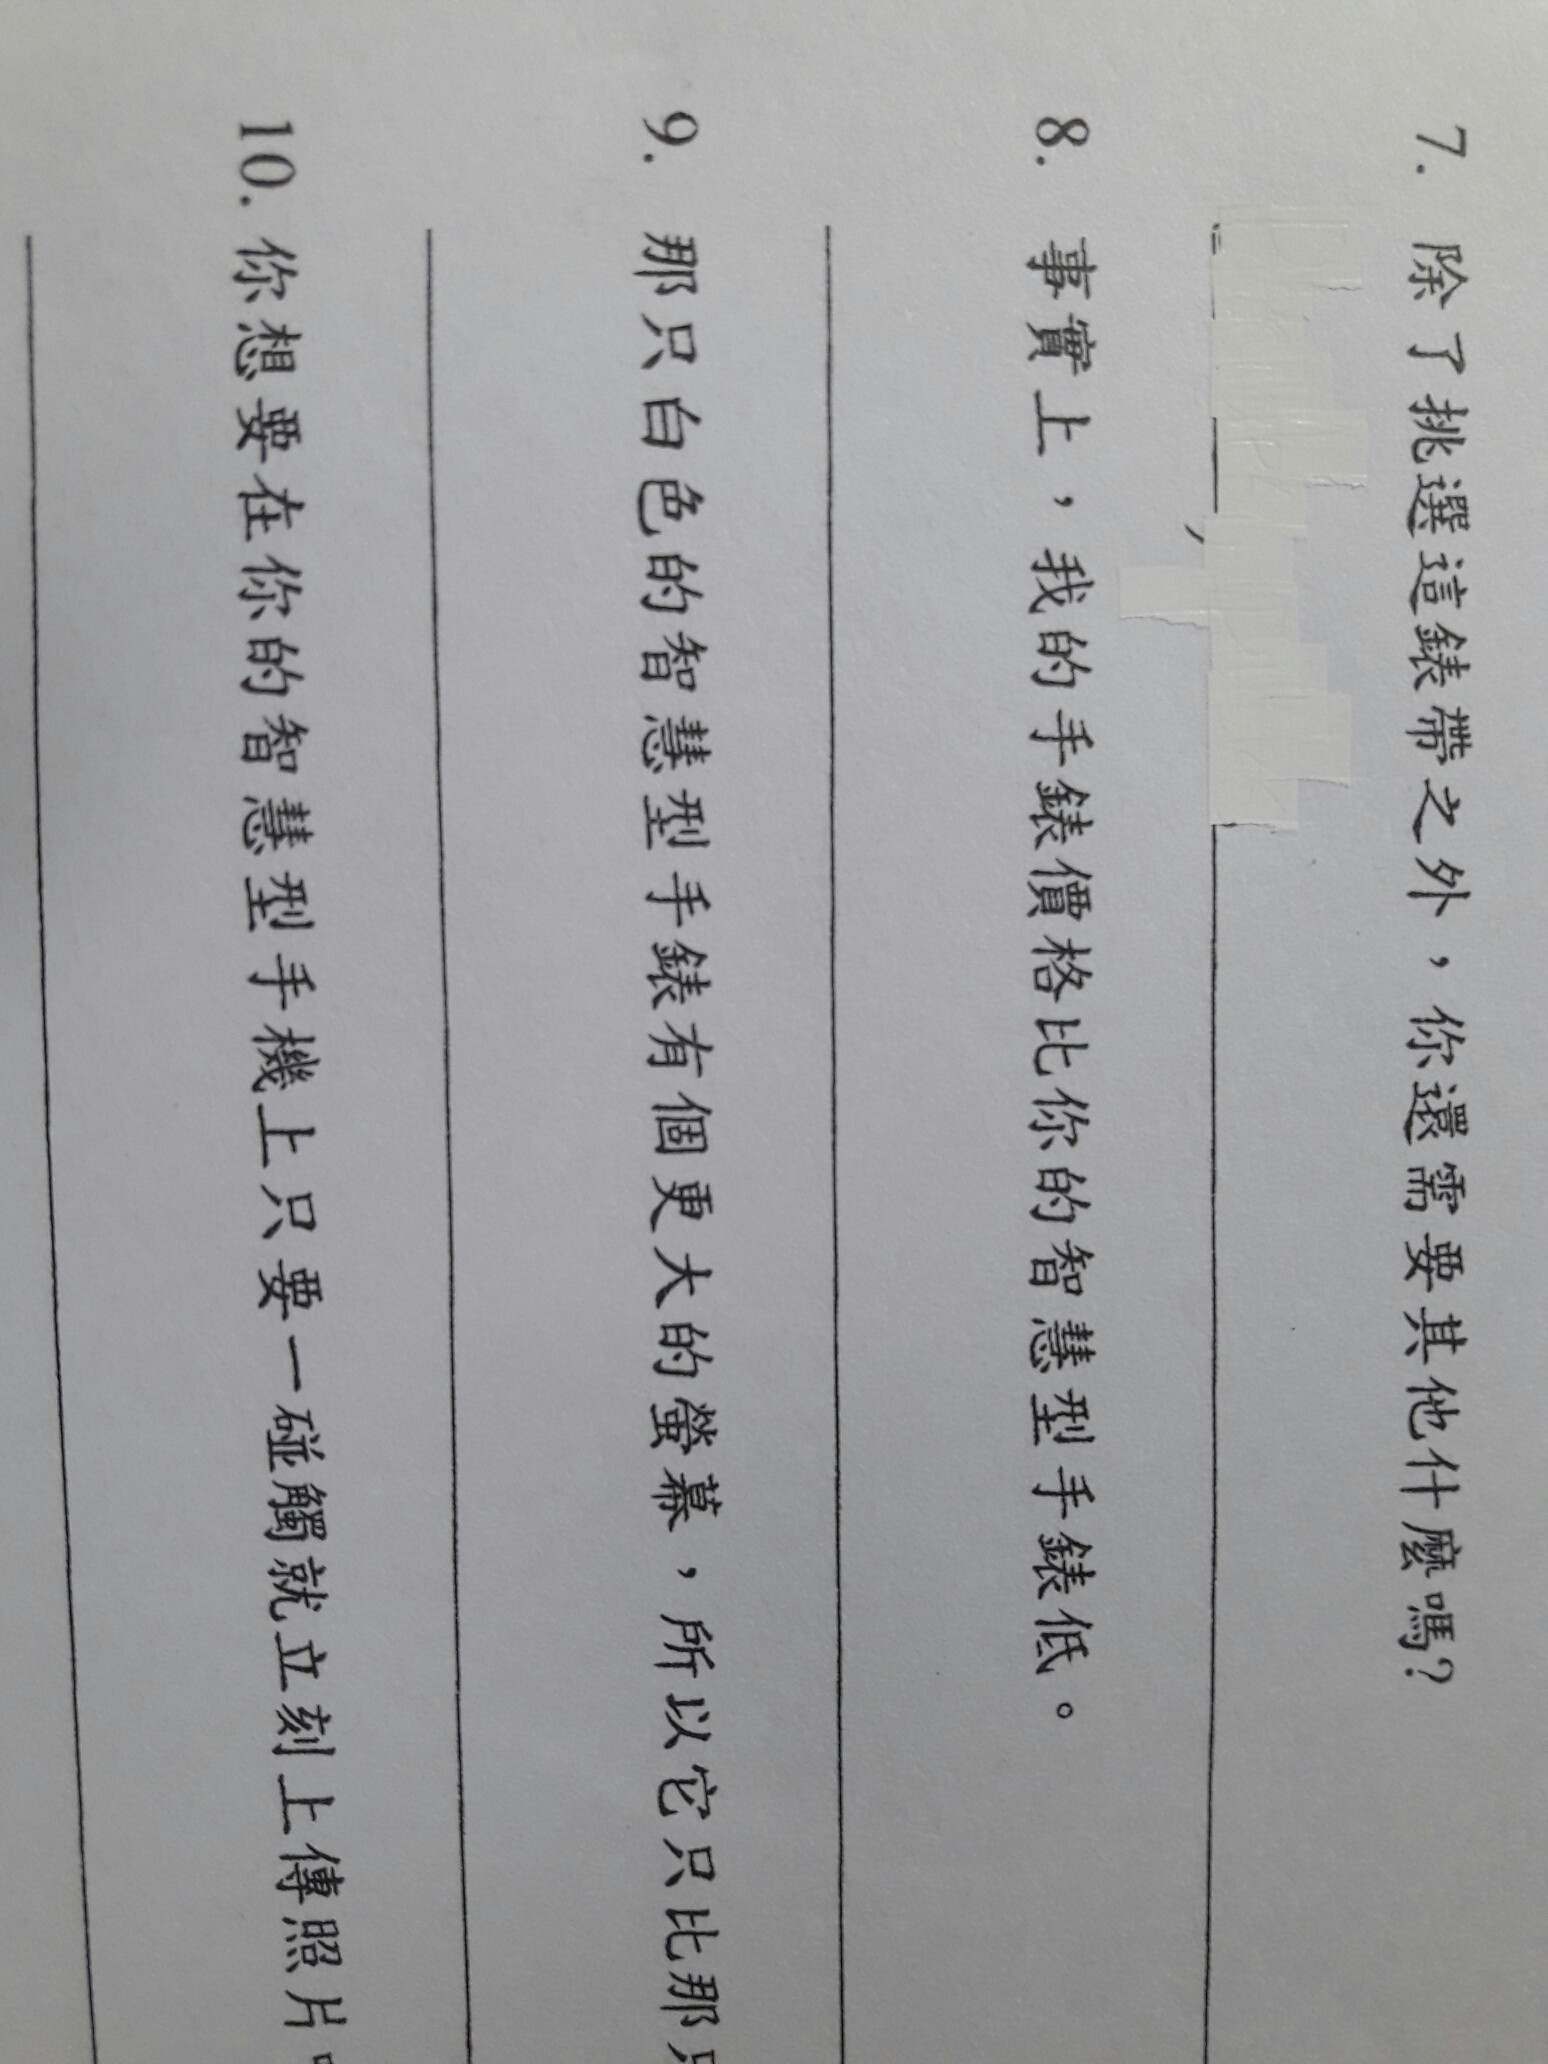 7. 除了挑選這錶帶之外，你還需要其他什麼嗎?
8. 事實上，我的手錶價格比你的智慧型手錶低。
9. 那只白色的智慧型手錶有個更大的螢幕，所以它只比那只
10. 你想要在你的智慧型手機上只要一碰觸就立刻上傳照片